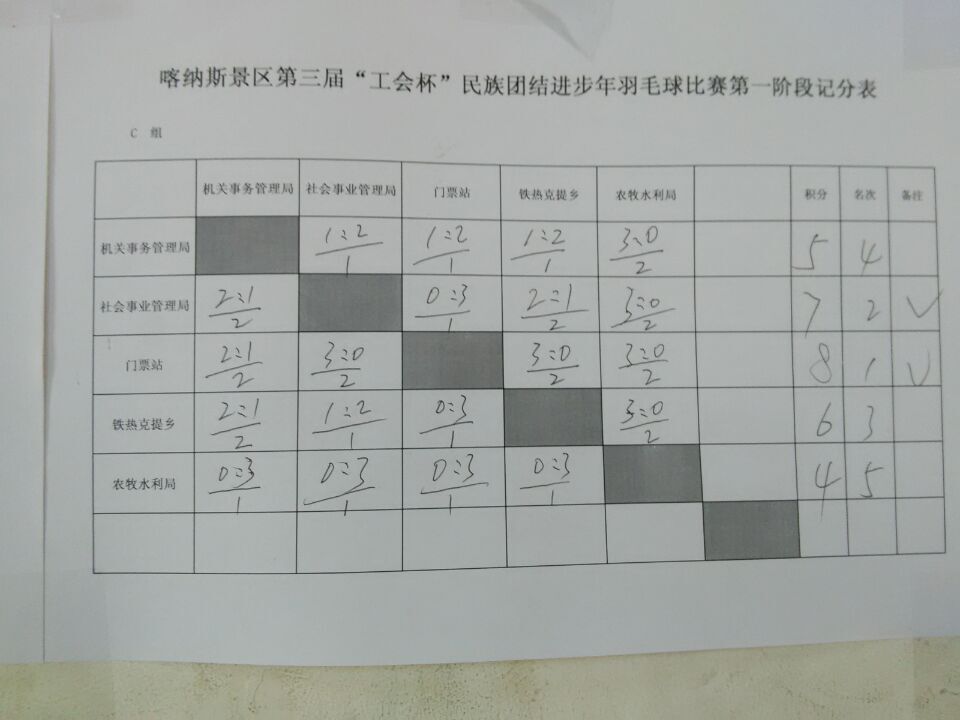 喀纳斯景区第三届“工会杯”民族团结进步年羽毛球比赛第一阶段记分表
C 组
机关事务管理局 社会事业管理局 门票站 铁热克提乡 农牧水利局 积分 名次 备注
机关事务管理局 1:2/1 1:2/1 1:2/1 3:0/2 5 4
社会事业管理局 2:1/2 0:3/1 2:1/2 3:0/2 7 2 √
门票站 2:1/2 3:0/2 3:0/2 3:0/2 8 1 √
铁热克提乡 2:1/2 1:2/1 0:3/1 3:0/2 6 3
农牧水利局 0:3/1 0:3/1 0:3/1 0:3/1 4 5